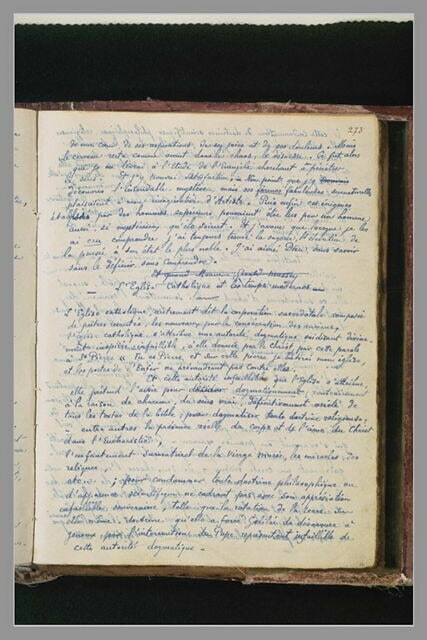 273
de mon cœur, de ses aspirations, de ses joies et de ses douleurs. Mais
le cerveau resta comme avant dans le chaos, le désaveu. Ce fut alors
que je me livrai à l'étude de l'Evangile cherchant à pénétrer
et j'y trouvai satisfaction. Non point que j'y
découvris l'insondable mystère, mais ses formes fabuleuses
plaisaient à mon imagination d'Artiste. Puis enfin ces énigmes
par des hommes supérieurs pouvaient être les
aussi si mystérieux qu'ils soient. Et j'avoue que lorsque je les
ai cru comprendre j'ai toujours trouvé la sagesse, l'élévation de
la pensée en son état le plus noble. J'ai aimé Dieu sans savoir
sans le définir, sans comprendre.
L'Eglise Catholique et les temps modernes
L'Eglise catholique, autrement dit la corporation sacerdotale composée
de prêtres recrutés, les nouveaux, par la consécration des anciens,
l'Eglise catholique s'attribue une autorité dogmatique soidisant divine
inspirée, infaillible, à elle donnée par le Christ par cette parole
à St Pierre « Tu es Pierre, et sur cette pierre je bâtirai mon église
et les portes de l'Enfer ne prévaudront pas contre elle.
Et cette autorité infaillible que l'Eglise s'attribue,
elle prétend l'avoir pour dogmatiquement, contrairement
à la raison de chacun, du sens vrai, définitivement
tous les textes de la bible; pour dogmatiser toute doctrine religieuse,
entre autres la présence réelle du corps et de l'âme du Christ
dans l'Eucharistie,
l'enfantement surnaturel de la Vierge Marie, les miracles des
reliques.
etc..; pour condamner toute doctrine philosophique ou
d'apparence scientifique ne cadrant pas avec son appréciation
infaillible, souveraine, telle que la rotation de la terre sur
elle même, doctrine qu'elle a forcé Galilée de désavouer à
genoux, par l'intervention du Pape représentant infaillible de
cette autorité dogmatique –